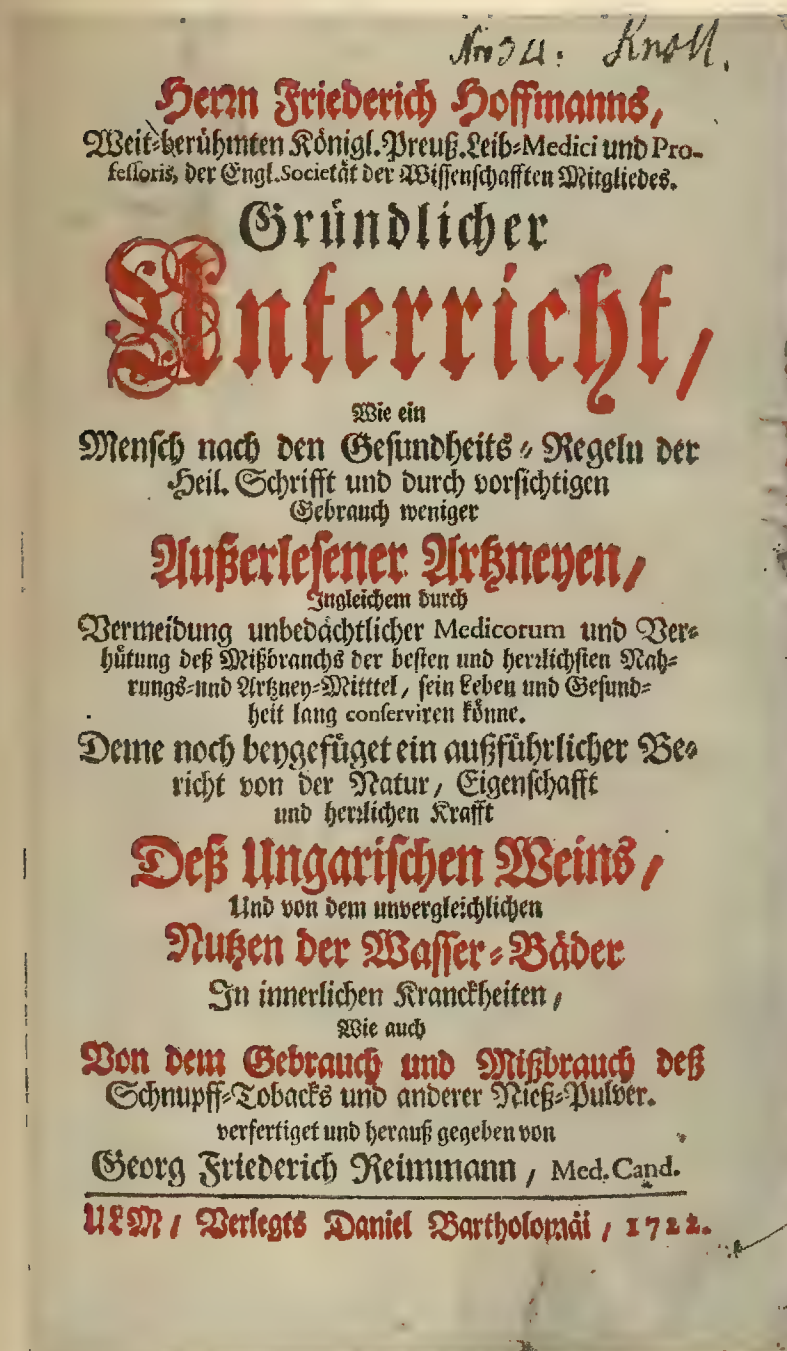 Knoll.
Herrn Friederich Hoffmanns,
Weit-berühmten Königl. Preuß. Leib-Medici und Pro-
fessoris, der Engl. Societät der Wissenschafften Mitgliedes.
Gründlicher
Unterricht,
Wie ein
Mensch nach den Gesundheits-Regeln der
Heil. Schrifft und durch vorsichtigen
Gebrauch weniger
Außerlesener Artzneyen/
Ingleichem durch
Vermeidung unbedächtlicher Medicorum und Ver-
hütung deß Mißbrauchs der besten und herrlichsten Nah-
rungs-und Artzney-Mitttel/ sein Leben und Gesund-
heit lang conserviren könne.
Deme noch beygefüget ein außführlicher Be-
richt von der Natur/ Eigenschafft
und herrlichen Krafft
Deß Ungarischen Weins/
Und von dem unvergleichlichen
Nutzen der Wasser-Bäder
In innerlichen Kranckheiten/
Wie auch
Von dem Gebrauch und Mißbrauch deß
Schnupff-Tobacks und anderer Nieß-Pulver.
verfertiget und herauß gegeben von
Georg Friederich Reimmann/ Med. Cand.
ULM/ Verlegts Daniel Bartholomäi/ 1722.